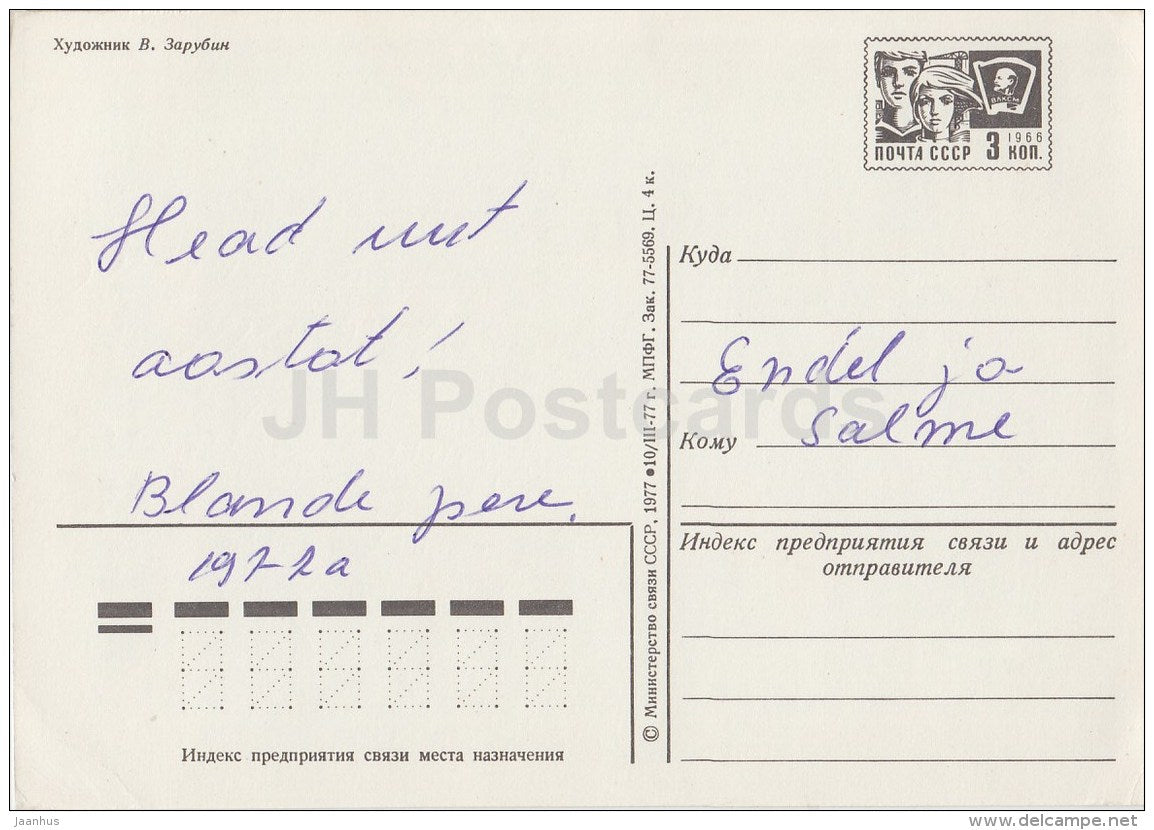 Художник В. Зарубин
ВЛКСМ
1966
ПОЧТА СССР 3 КОП.
Head uut
aastat!
Blande pere.
Куда
Endel ja
Кому Salme
© Министерство связи СССР, 1977 ●10/III-77 г. МПФГ. Зак. 77-5569. Ц. 4 к.
Индекс предприятия связи и адрес
отправителя
Индекс предприятия связи места назначения
JH Postcards
Jaanhus
www.delcampe.net